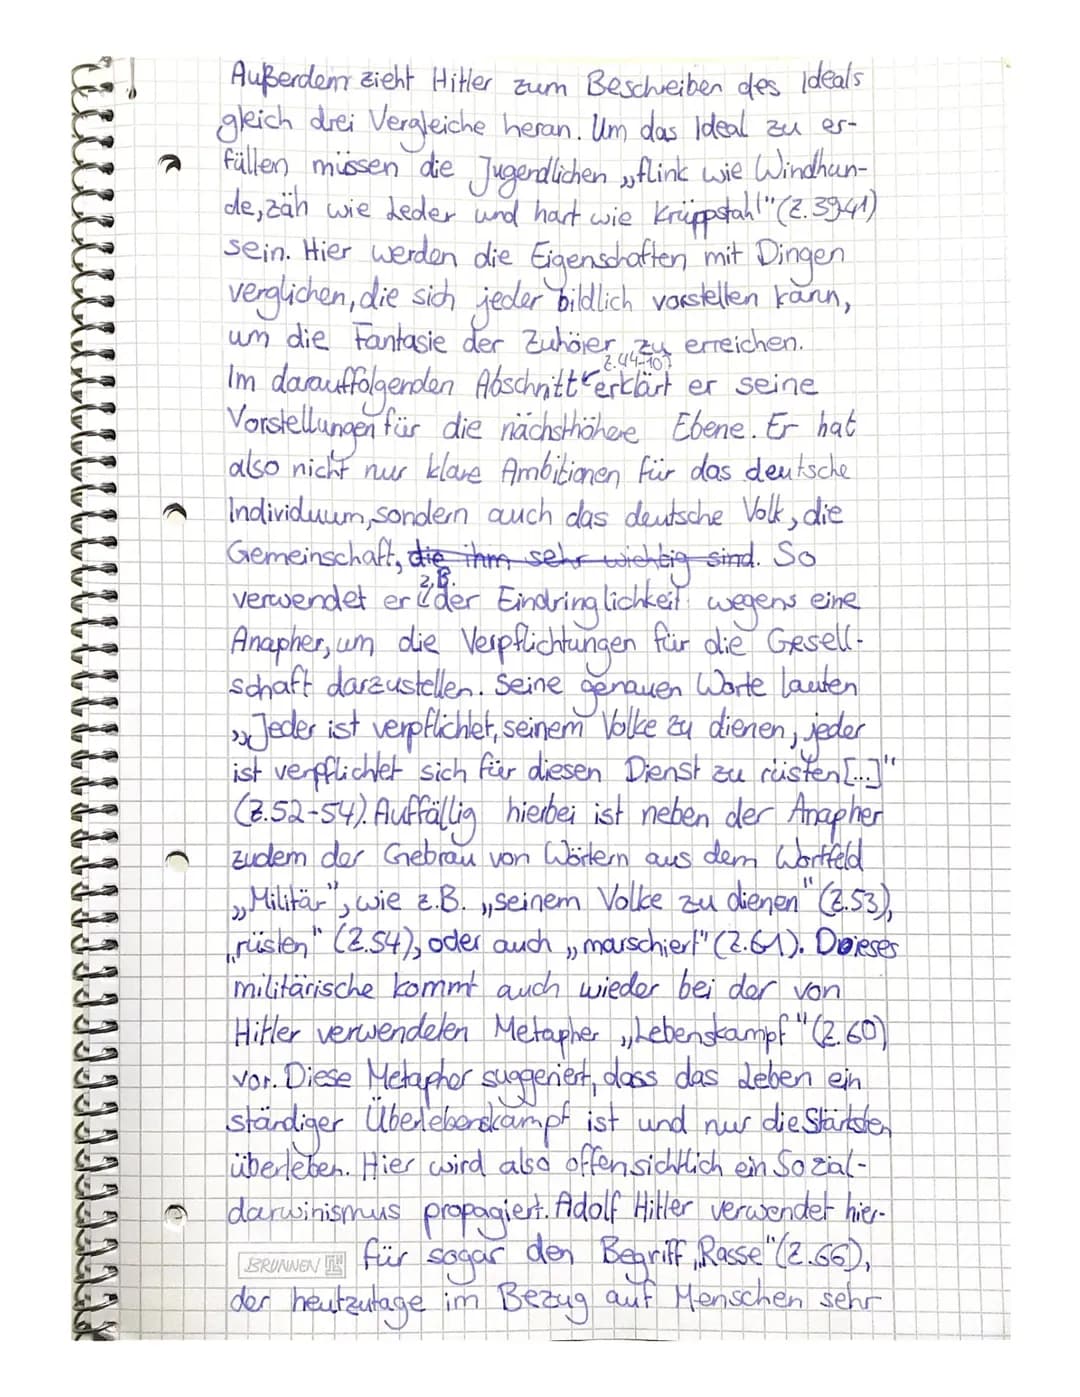 Außerdem zieht Hitler zum Beschreiben des Ideals
gleich drei Vergleiche heran. Um das Ideal zu er-
füllen müssen die Jugendlichen „flink wie Windhun-
de, zäh wie Leder und hart wie Krüppstahl" (Z.39-41)
sein. Hier werden die Eigenschaften mit Dingen
verglichen, die sich jeder bildlich vorstellen kann,
um die Fantasie der Zuhörer zu erreichen.
Z.44-
Im darauffolgenden Abschnitt erklärt er seine
Vorstellungen für die nächsthöhere Ebene. Er hat
also nicht nur klare Ambitionen für das deutsche
Individuum, sondern auch das deutsche Volk, die
Gemeinschaft, die ihm sehr wichtig sind. So
z.B.
verwendet er der Eindringlichkeit wegens eine
Anapher, um die Verpflichtungen für die Gesell-
schaft darzustellen. Seine genauen Worte lauten
„Jeder ist verpflichtet, seinem Volke zu dienen, jeder
ist verpflichtet sich für diesen Dienst zu rüsten [...]"
(Z.52-54). Auffällig hierbei ist neben der Anapher
zudem der Gebrau von Wörtern aus dem Wortfeld
„Militär", wie z.B. „seinem Volke zu dienen" (Z.53),
„rüsten" (Z.54), oder auch „marschiert" (Z.61). Dieses
militärische kommt auch wieder bei der von
Hitler verwendeten Metapher „Lebenskampf" (Z.60)
vor. Diese Metapher suggeriert, dass das Leben ein
ständiger Überlebenskampf ist und nur die Stärksten
überleben. Hier wird also offensichtlich ein Sozial-
darwinismus propagiert. Adolf Hitler verwendet hier-
BRUNNEN für sogar den Begriff „Rasse" (Z.66),
der heutzutage im Bezug auf Menschen sehr